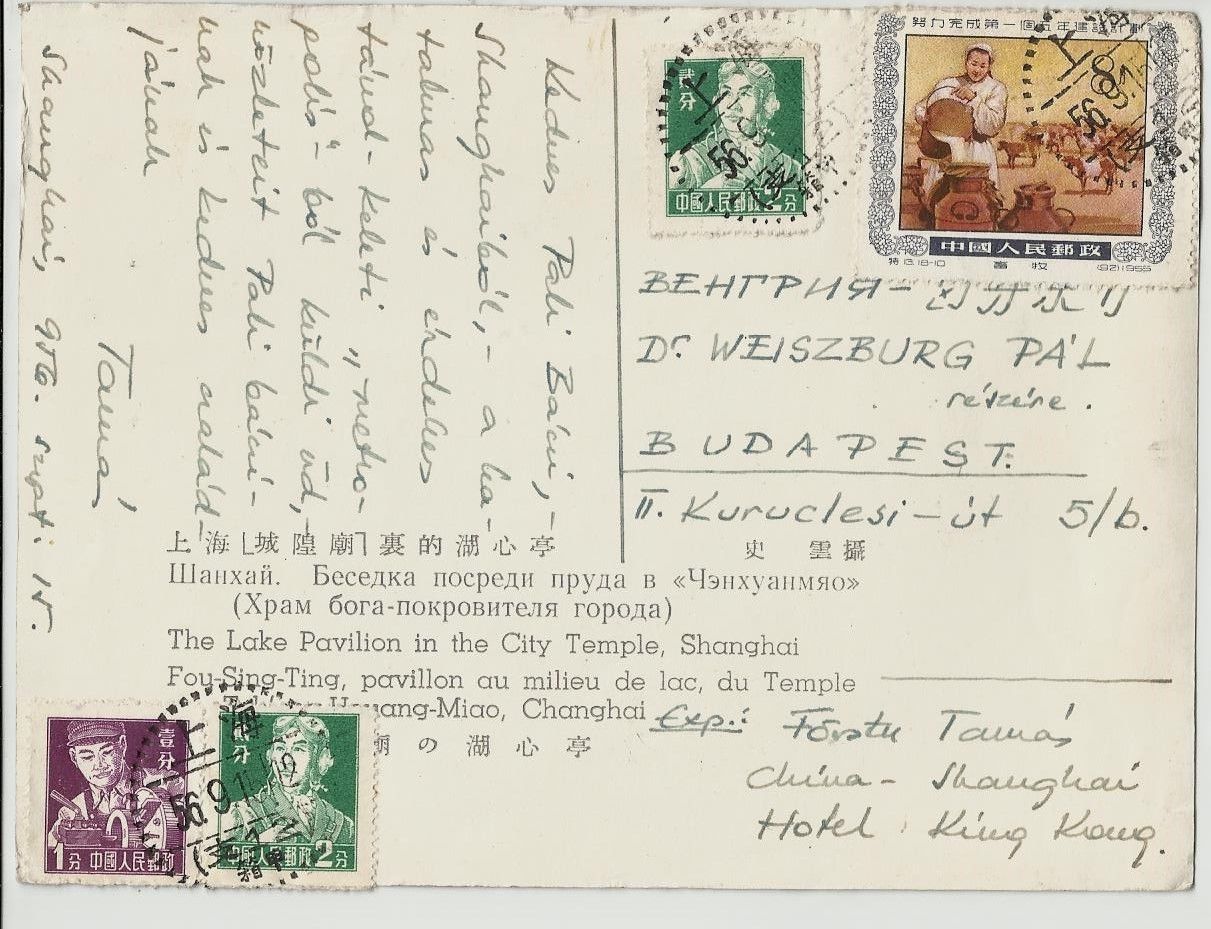 Kedves Pali Bácsi, –
Shanghaiból, – a ha-
talmas és érdekes
távol-keleti „metro-
polis"-ból küldi üd-
vözleteit Pali bácsi-
nak és kedves család-
jának
Tamás
Shanghai, 956. szept. 15.
贰分
中國人民郵政 2分
努力完成第一個五年建設計劃
中國人民郵政
特13.18-10 畜牧 (92)1955
上海
56.9.1
上海
56.9.1
ВЕНГРИЯ – 匈牙利
Dr. WEISZBURG PÁL
részére.
BUDAPEST.
II. Kuruclesi-út 5/b.
上海「城隍廟」裏的湖心亭
史雲攝
Шанхай. Беседка посреди пруда в «Чэнхуанмяо»
(Храм бога-покровителя города)
The Lake Pavilion in the City Temple, Shanghai
Fou-Sing-Ting, pavillon au milieu de lac, du Temple
ang-Miao, Changhai
廟の湖心亭
Exp.: Förstu Tamás
China – Shanghai
Hotel King Kong.
壹分
1分 中國人民郵政
分
中國人民郵政 2分
上海
56.9.1